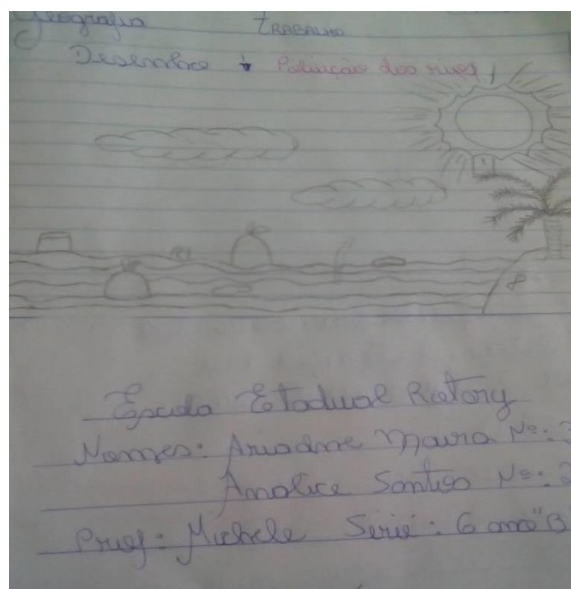 Geografia TRABALHO
Desembro Poluição dos rios
Escola Estadual Rotory
Nomes: Ariadne Maura Nº:
Analice Santiso Nº:
Prof: Michele Serie: 6 ano "B"